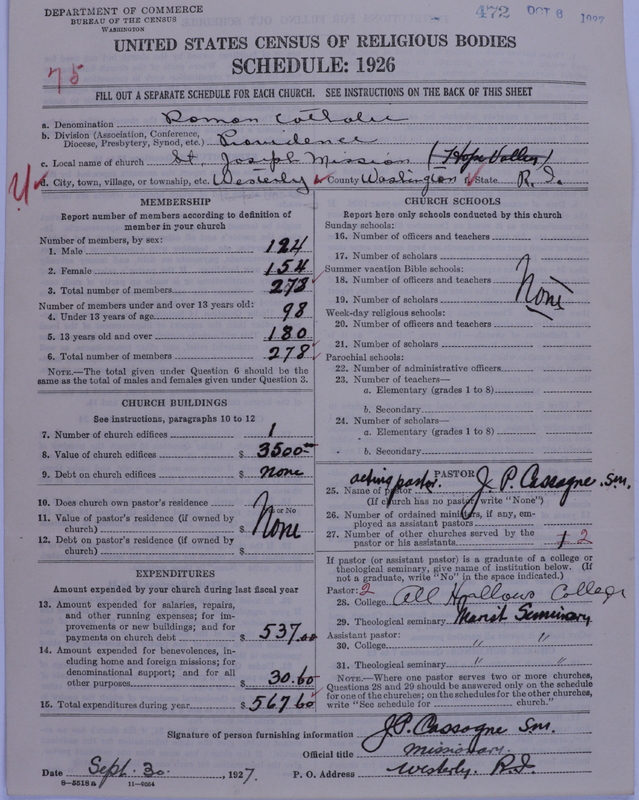 DEPARTMENT OF COMMERCE
BUREAU OF THE CENSUS
WASHINGTON
472 OCT 8 1927
UNITED STATES CENSUS OF RELIGIOUS BODIES
SCHEDULE: 1926
75
FILL OUT A SEPARATE SCHEDULE FOR EACH CHURCH. SEE INSTRUCTIONS ON THE BACK OF THIS SHEET
a. Denomination Roman Catholic
b. Division (Association, Conference, Diocese, Presbytery, Synod, etc.) Providence
c. Local name of church St. Joseph Mission (Hope Valley)
d. City, town, village, or township, etc. Westerly County Washington State R. I.
MEMBERSHIP
Report number of members according to definition of
member in your church
Number of members, by sex:
1. Male 124
2. Female 154
3. Total number of members 278
Number of members under and over 13 years old:
4. Under 13 years of age 98
5. 13 years old and over 180
6. Total number of members 278
NOTE.—The total given under Question 6 should be
same as the total of males and females given under Question 3.
CHURCH BUILDINGS
See instructions, paragraphs 10 to 12
7. Number of church edifices 1
8. Value of church edifices $ 3500.00
9. Debt on church edifices $ none
10. Does church own pastor's residence
or No
11. Value of pastor's residence (if owned by
church) $ None
12. Debt on pastor's residence (if owned by
church) $
EXPENDITURES
Amount expended by your church during last fiscal year
13. Amount expended for salaries, repairs,
and other running expenses; for im-
provements or new buildings; and for
payments on church debt $ 537.00
14. Amount expended for benevolences, in-
cluding home and foreign missions; for
denominational support; and for all
other purposes $ 30.60
15. Total expenditures during year $ 567.60
CHURCH SCHOOLS
Report here only schools conducted by this church
Sunday schools:
16. Number of officers and teachers
17. Number of scholars
Summer vacation Bible schools:
18. Number of officers and teachers
None
19. Number of scholars
Week-day religious schools:
20. Number of officers and teachers
21. Number of scholars
Parochial schools:
22. Number of administrative officers
23. Number of teachers—
a. Elementary (grades 1 to 8)
b. Secondary
24. Number of scholars—
a. Elementary (grades 1 to 8)
b. Secondary
PASTOR
acting pastor.
25. Name of pastor J. P. Cassagne, sm.
(If church has no pastor, write "None")
26. Number of ordained ministers, if any, em-
ployed as assistant pastors
27. Number of other churches served by the
pastor or his assistants 1 2
If pastor (or assistant pastor) is a graduate of a college or
theological seminary, give name of institution below. (If
not a graduate, write "No" in the space indicated.)
Pastor: 2
28. College All Hallows College
29. Theological seminary Marist Seminary
Assistant pastor:
30. College " "
31. Theological seminary " "
NOTE.—Where one pastor serves two or more churches,
Questions 28 and 29 should be answered only on the schedule
for one of the churches; on the schedules for the other churches,
write "See schedule for church."
Signature of person furnishing information J. P. Cassagne Sm.
Official title Missionary.
Date Sept. 30., 1927. P. O. Address Westerly R.I.
8—5518a 11—9054